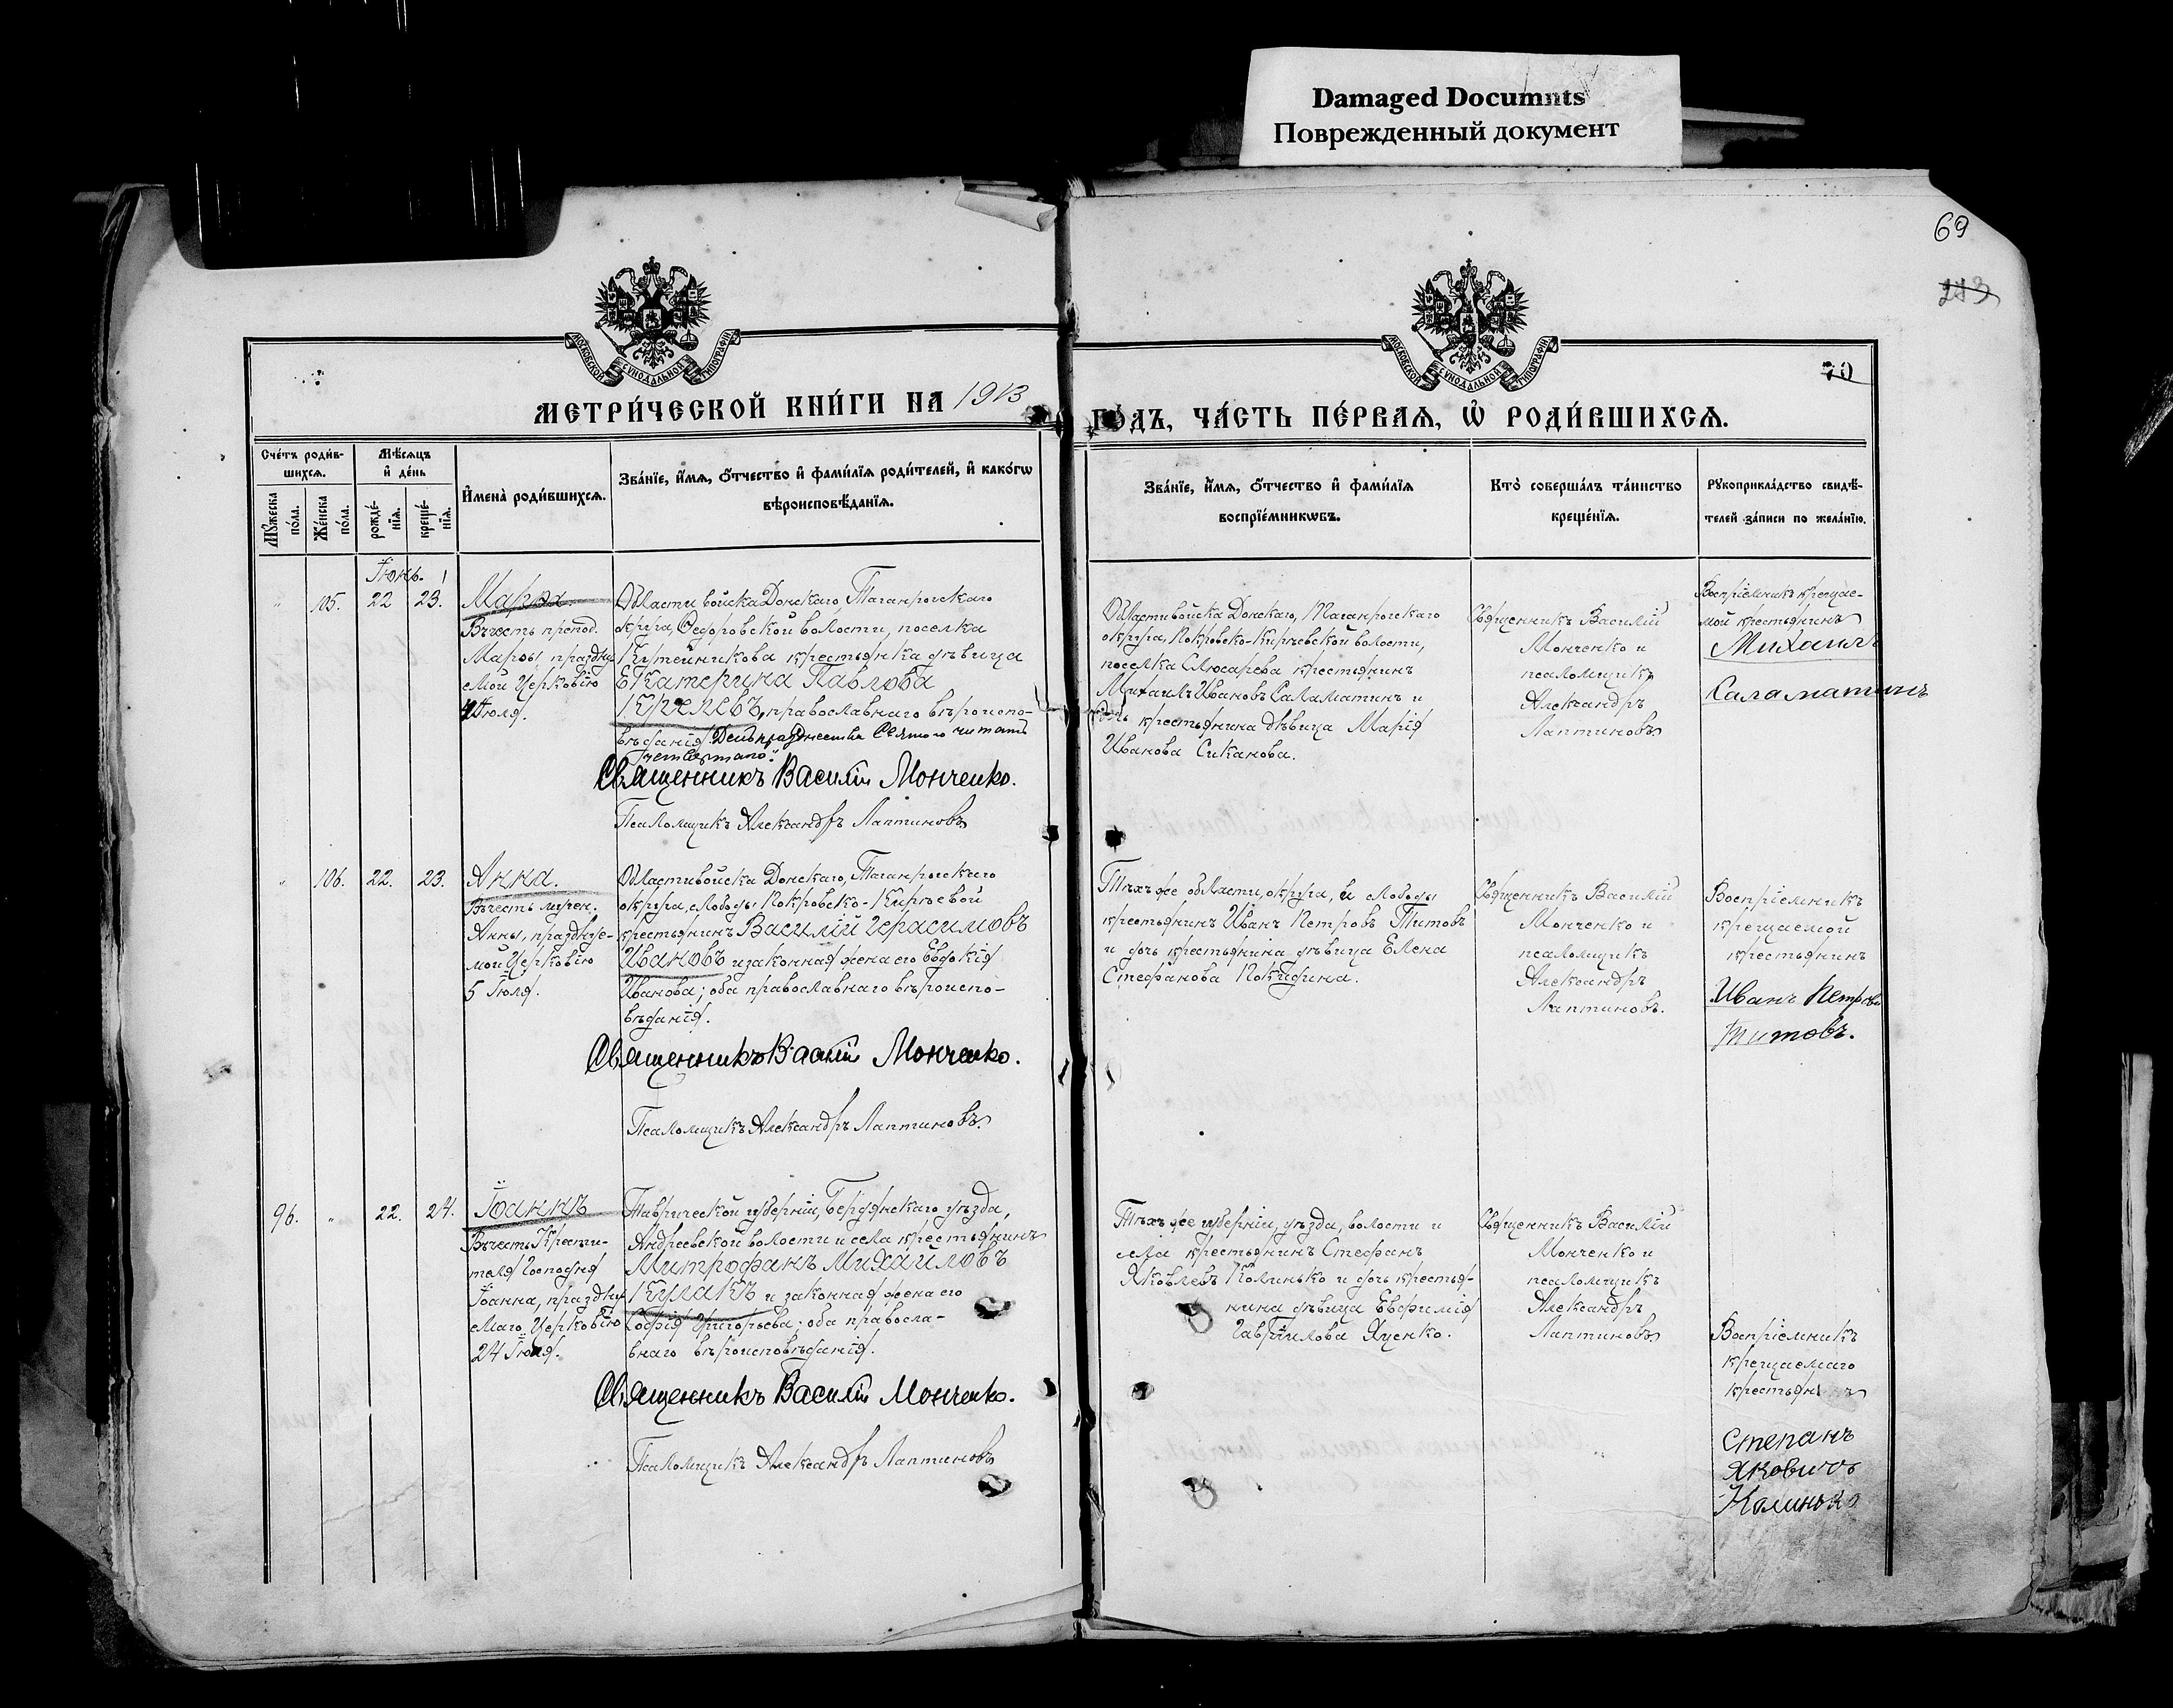 Damaged Documnts
Поврежденный документ
69
213
70
МОСКОВСКОЙ СѴНОДАЛЬНОЙ ТИПОГРАФІИ
МОСКОВСКОЙ СѴНОДАЛЬНОЙ ТИПОГРАФІИ
МЕТРИ́ЧЕСКОЙ КНИ́ГИ НА 1913
ГО́ДЪ, ЧА́СТЬ ПЕ́РВАѦ, Ѡ҆ РОДИ́ВШИХСѦ.
Сче́тъ роди́в-
шихсѧ.
Мꙋ́жеска по́ла.
Же́нска по́ла.
Мѣ́сѧцъ
и҆ де́нь
рожде́-
нїѧ.
креще́-
нїѧ.
И҆мена̀ роди́вшихсѧ.
Зва́нїе, и҆́мѧ, ѻ҆́тчество и҆ фами́лїѧ роди́телей, и҆ како́гѡ
вѣроисповѣ́данїѧ.
Зва́нїе, и҆́мѧ, ѻ҆́тчество и҆ фами́лїѧ
воспрїе́мникѡвъ.
Кто̀ соверша́лъ та́инство
креще́нїѧ.
Рꙋкоприкла́дство свидѣ́-
телей за́писи по жела́нїю.
Іюнь.
" 105. 22 23.
Марѳа.
Въ честь препод.
Марѳы, праздну
емой Церковію
4 Іюля.
Области войска Донскаго, Таганрогскаго
округа, Ѳедоровской волости, поселка
Куте́йникова крестьянка дѣвица
Екатерина Павлова
православнаго вѣроиспо-
вѣданія. День празднества Святого читать
"четвертаго".
Священникъ Василій Мончеико.
Псаломщикъ Александръ Лаптиновъ
Области войска Донскаго, Таганрогскаго
округа, Покровско-Кирѣевской волости,
поселка Слюсарева крестьянинъ
Михаилъ Ивановъ Саламатинъ и
дочь крестьянина дѣвица Марія
Иванова Сиканова.
Священникъ Василій
Мончеико и
псаломщикъ
Александръ
Лаптиновъ
Воспріемникъ крещае-
мой крестьянинъ
Михаилъ
Саламатинъ
" 106. 22. 23.
Анна.
Въ честь мучен.
Анны, праздную-
мой Церковію
5 Іюля.
Области войска Донскаго, Таганрогскаго
округа, слободы Покровско-Кирѣевой
крестьянинъ Василій Герасимовъ
Ивановъ и законная жена его Евдокія
Иванова; оба православнаго вѣроиспо-
вѣданія.
Священникъ Василій Мончеико.
Псаломщикъ Александръ Лаптиновъ.
Тѣхъ же области, округа, и слободы
крестьянинъ Иванъ Петровъ Титовъ
и дочь крестьянина дѣвица Елена
Стефанова
Священникъ Василій
Мончеико и
псаломщикъ
Александръ
Лаптиновъ.
Воспріемникъ
крещаемой
крестьянинъ
Иванъ Петровъ
Титовъ.
96. " 22. 24.
Іоаннъ
Въ честь Крести-
теля Господня
Іоанна, праздну
емаго Церковію
24 Іюня.
Таврической губерніи, Бердянскаго уѣзда,
Андреевской волости и села крестьянинъ
Митрофанъ Михайловъ
Кулакъ и законная жена его
Софія Григорьева; оба правосла-
внаго вѣроисповѣданія.
Священникъ Василій Мончеико.
Псаломщикъ Александръ Лаптиновъ
Тѣхъ же губерніи, уѣзда, волости и
села крестьянинъ Стефанъ
Яковлевъ Калинько и дочь крестья-
нина дѣвица Евфимія
Гавріилова Яценко.
Священникъ Василій
Мончеико и
псаломщикъ
Александръ
Лаптиновъ
Воспріемникъ
крещаемаго
крестьянинъ
Степанъ
Яковичъ
Калинько